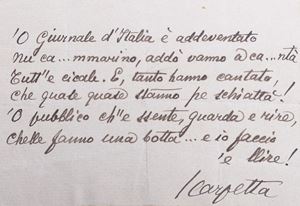 'O Giurnale d'Italia è addeventato
Nu ca...mmarino, addò vanno a ca...ntà
Tutt''e cicale. E, tanto hanno cantato,
che quase quase stanno pe schiattà!
'O pubblico ch''e ssente, guarda e rire,
chelle fanno una botta... e io faccio
'e llire!
Scarpetta